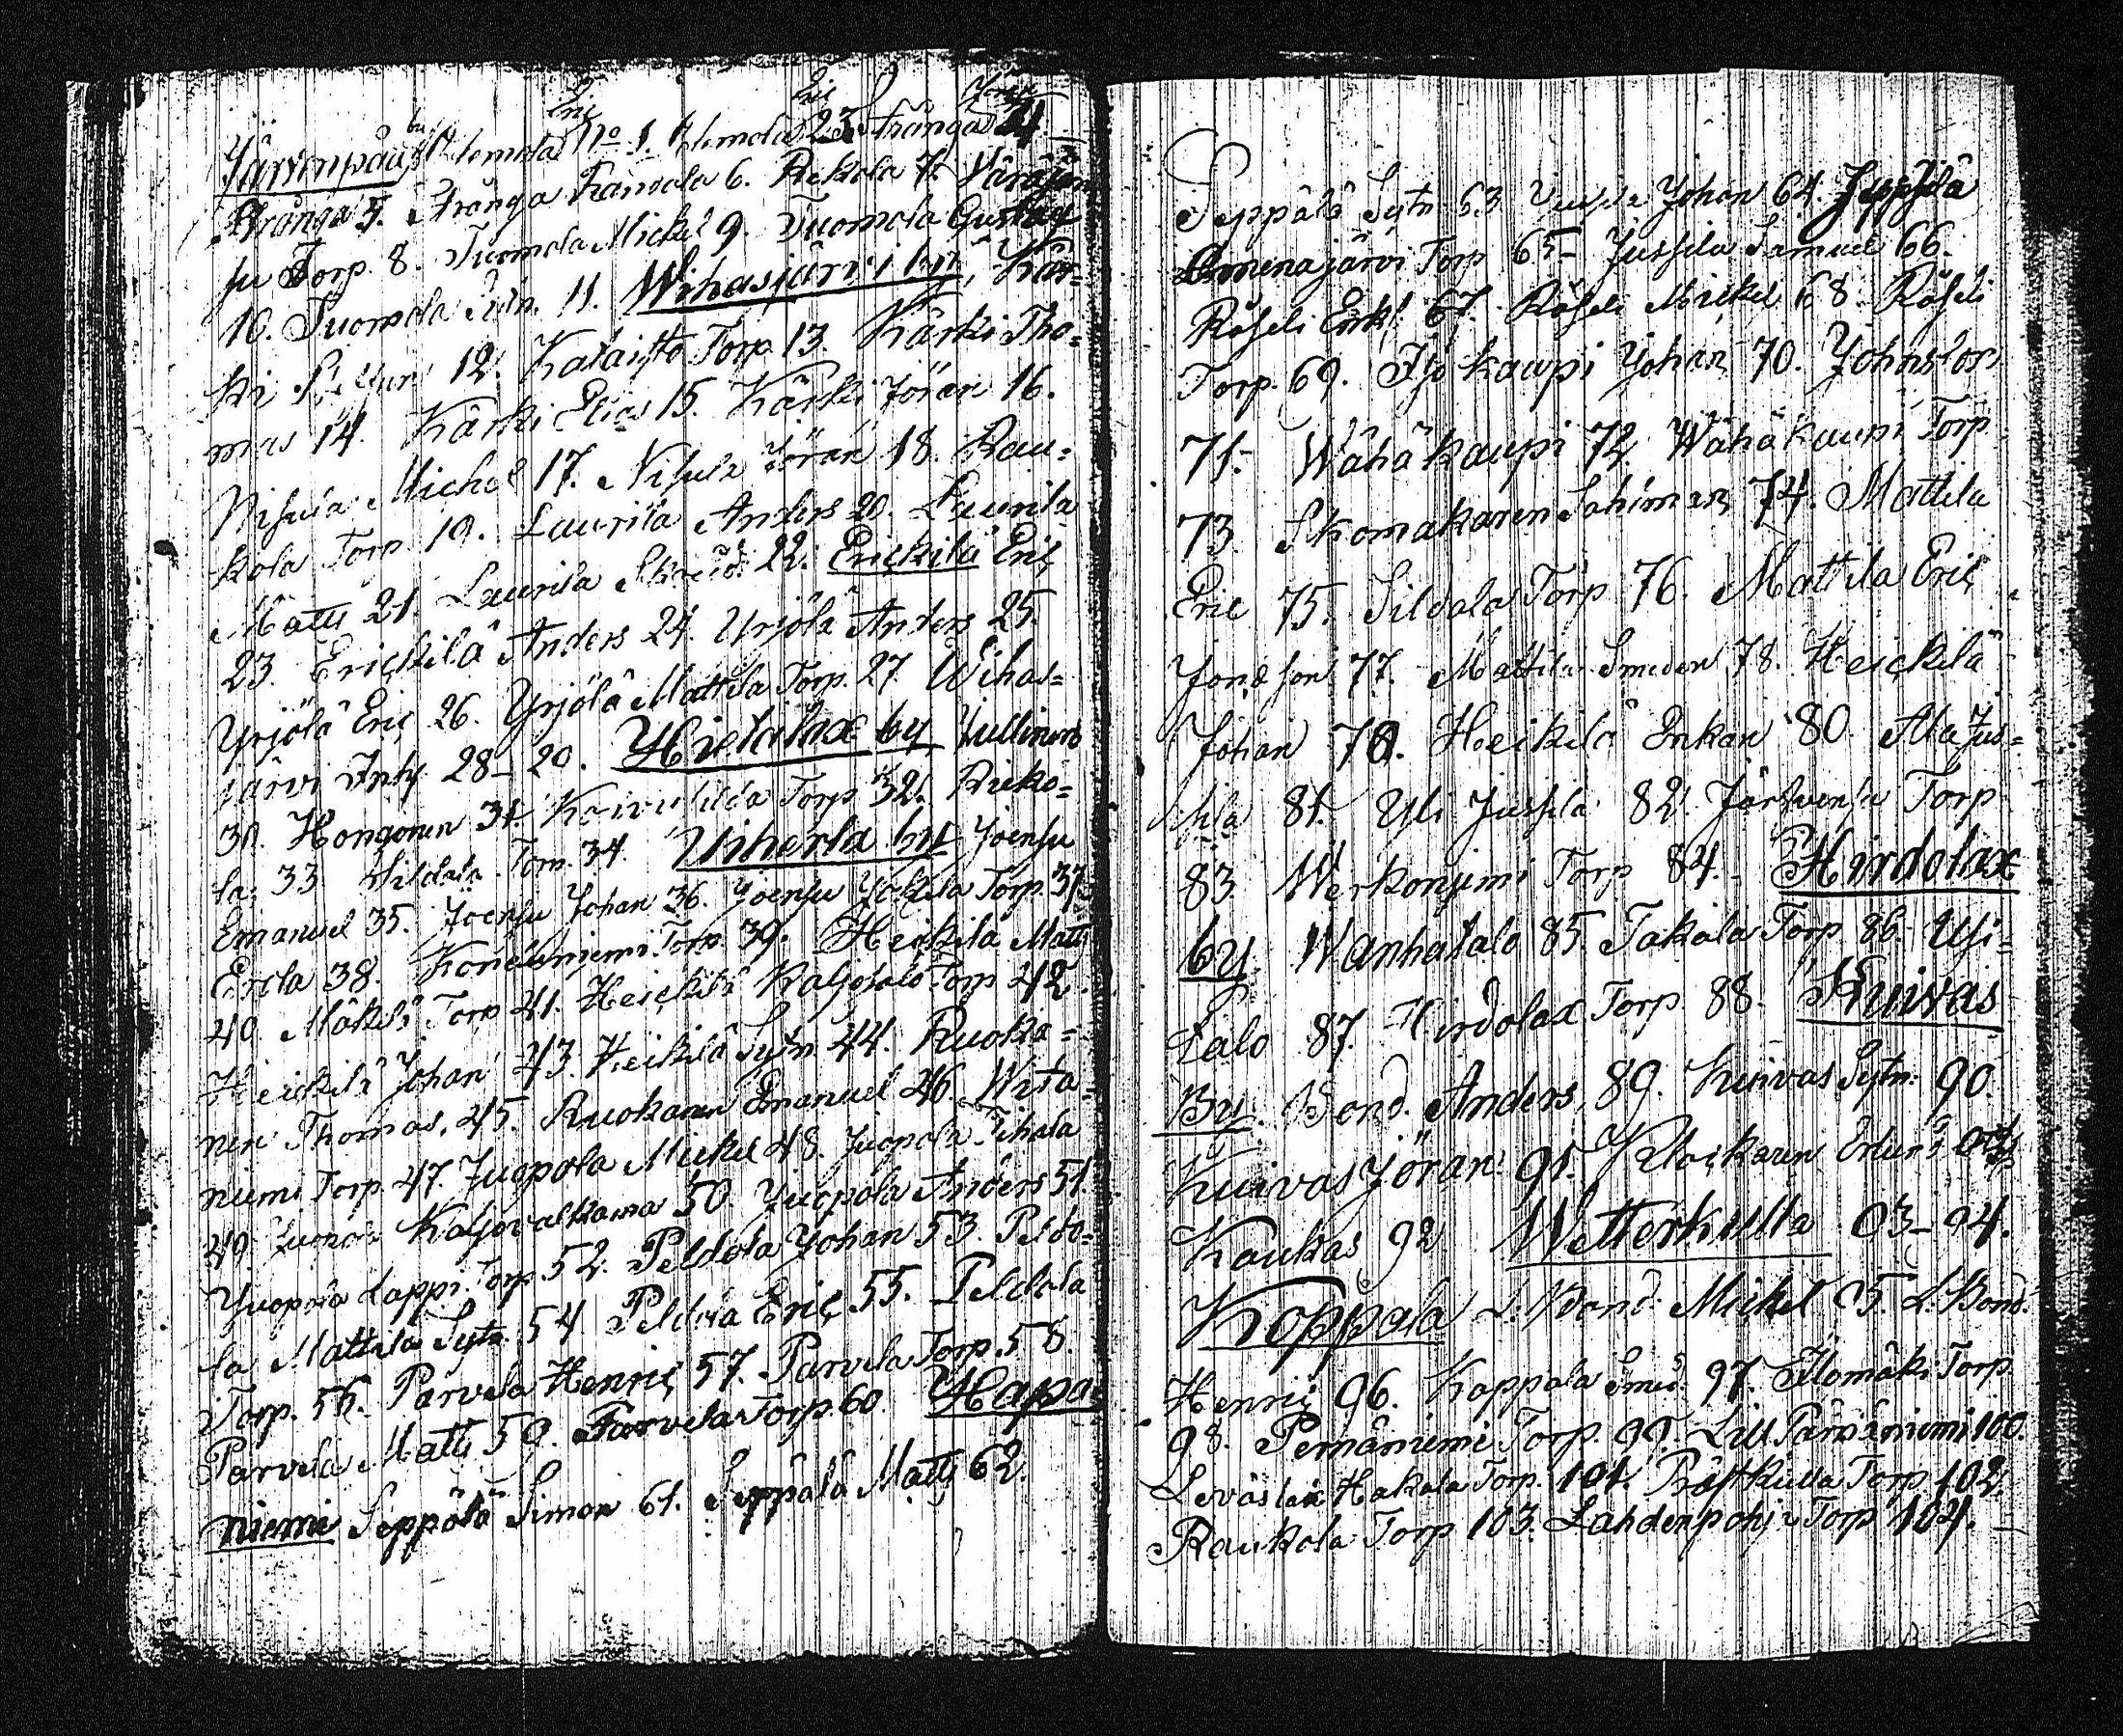 Eric Eric Jöran
Järvenpää by Alemola No 1. Alemola 23. Aränga 4
Aränga 5. Aränga Kanoala 6. Rekola 7. Wäräjen
su Torp. 8. Tuomola Mickel 9. Tuomola Gustav
10. Tuomola Sytn. 11. Wihasjärvi by, Kär=
ki 12. Kataisto Torp 13. Kärki Tho=
mas 14. Kärki Elias 15. Kärki Jöran 16.
Nisula Michel 17. Nisula Jöran 18. Rau=
kola Torp. 19. Laurila Anders 20. Laurila
Matts 21. Laurila 22. Erickilä Eric
23. Erickilä Anders 24. Urjölä Anders 25.
Yrjölä Eric 26. Yrjölä Mattila Torp. 27. Wihas=
järvi 28-29. Hietalax by
30. Hongonen 31. Torp 32. Rieko=
la 33. Torp. 34. Uiherla by Joensu
Emanuel 35. Joensu Johan 36. Joensu Jokela Torp. 37.
Erola 38. Torp. 39. Heickilä Matts
40. Mäkelä Torp 41. Heickilä Torp 42.
Heickilä Johan 43. Heickilä Sytn 44. Ruoka=
nen Thomas, 45. Ruokanen Emanuel 46. Wita=
niemi Torp. 47. Juopola Mickel 48. Juopola Tihala
49. Kaljovalkama 50. Juopola Anders 51.
Juopola Lappi Torp 52. Peldola Johan 53. Peldo=
la Mattila Sytn. 54. Peldola Eric 55. Peldola
Torp. 56. Parvela Henric 57. Parvela Torp. 58.
Parvela Matts 59. Parvela Torp. 60. Hapa=
niemi Seppälä Simon 61. Seppälä Matts 62.
Seppälä Sytn 63. Johan 64. Jussila
Omenajärvi Torp 65- Jussila Samuel 66.
Röseli Enk. 67. Röseli Mickel 68. Röseli
Torp. 69. Iso kaupi Johan 70.
71. Wähäkaupi 72. Wähäkaupi Torp
73. Skomakaren 74. Mattila
Eric 75. Sildala Torp 76. Mattila Eric
Jonsson 77. Mattila Smeden 78. Heickilä
Johan 79. Heikilä Enkan 80. Ala Jus=
sila 81. Uli Jussila 82. Torp
83. Werkonjemi Torp 84. Hirdolax
by. Wanhatalo 85. Takala Torp 86. Usi=
talo 87. Hirdolax Torp. 88. Kuivas
By. Bond. Anders, 89. Kuivas Sytn. 90.
Kuivas Jöran 91. Klockaren
Kaukas 92 Wetterkulla 93-94.
Koppala L. Bond. Mickel 95. L. Bond.
Henric 96. Koppala Smed. 97. Ilomäki Torp
98. Pemäniemi Torp. 99. Lill Pärnäniemi 100
Leväslax Hakala Torp. 101. Prästkulla Torp 102.
Raukola Torp 103. Lahdenpohja Torp 104.